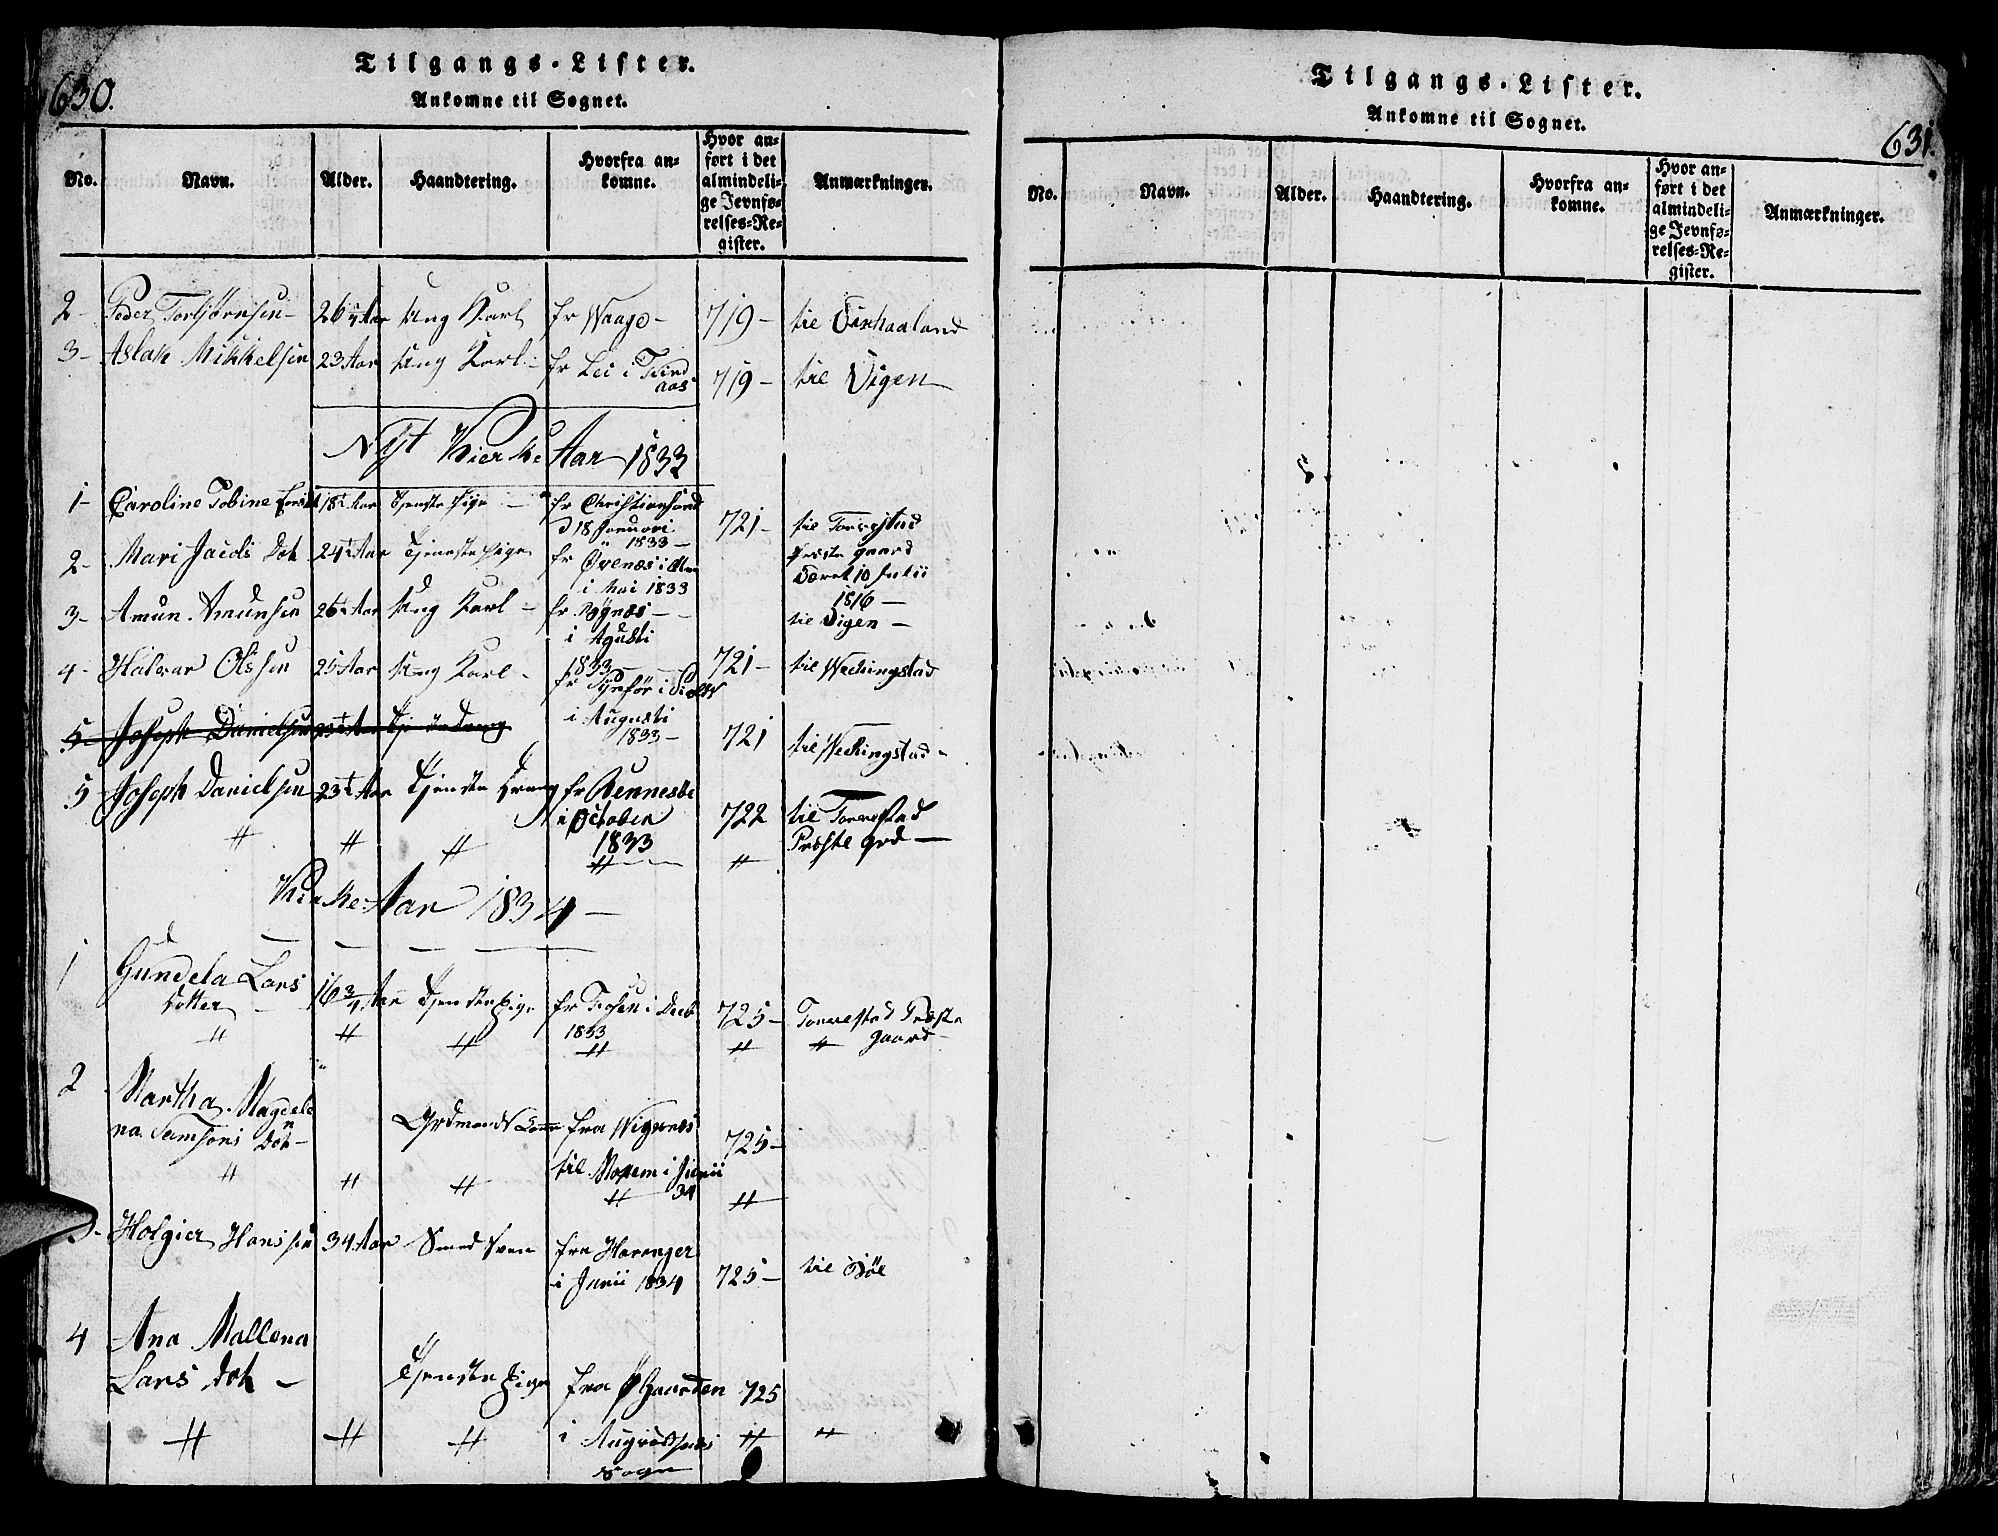 630.
Tilgangs-Lister.
Ankomne til Sognet.
No. Navn. Alder. Haandtering. Hvorfra ankomne. Hvor anført i det almindelige Jevnførelses-Register. Anmærkninger.
2- Peder Torbjørnsen- 26 Aar Ung Karl fr Waage- 719- til
3- Aslak Mikkelsen 23 Aar Ung Karl- fr Lei i 719- til Vigen
Nyt Kierke Aar 1833
1- Caroline Tobine 18 Aar Tjeneste Pige - fr Christiansand
d 18 Januari 721- til Torvestad
1833- Præste gaard
2- Mari Jacobs Dot 24½ Aar Tjeneste Pige fr
i Mai 1833 10 Julii
1816-
3- Amun Amunsen 26 Aar Ung Karl - fr til Vigen -
i Agusti
1833
4- Halvar Olssen 25 Aar Ung Karl - fr 721- til Weckingstad
i Augusti
1833- 721 til Weckingstad-
5- Joseph Danielsen 23½ Aar
5 Joseph Danielsen 23½ Aar Tjeneste Dreng fr Rennesøe
i October 722 til Torvestad
1833 Præste grd-
Kirke-Aar 1834-
1 Gundela Lars
Dotter 16 3/4 Aar Tjeneste Pige fr i Decb 725- Torvestad Præste
1833 Gaard-
2 Martha Magdele
na Samsons Dot- fra Wignæs 725-
til i Junii
34
3- Holgier Hanssen 34 Aar Smed Sven fra
i Junii 1834 725- til Bøe
4 Ana Mallena
Lars Dot - Tjeneste Pige fra 725
i
Sogn
Tilgangs-Lister.
Ankomne til Sognet.
631.
No. Navn. Alder. Haandtering. Hvorfra ankomne. Hvor anført i det almindelige Jevnførelses-Register. Anmærkninger.